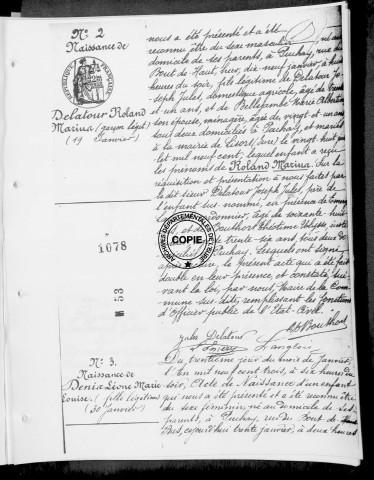 N° 2
Naissance de
Delatour Roland
Marina (garçon légit)
(19 Janvier)
nous a été présenté et a été
reconnu être du sexe masculin, né au
domicile de ses parents, à Puchay, rue du
Bout de Haut, hier, dix neuf janvier, à huit
heures du soir, fils légitime de Delatour Jo-
seph Jules, domestique agricole, âgé de trente
et un ans, et de Bellegande Marie Albertine
son épouse, ménagère, âgée de vingt et un ans
tous deux domiciliés à Puchay, et mariés
à la mairie de Lisors (Eure) le vingt huit
juillet mil neuf cent; lequel enfant a reçu
les prénoms de Roland Marina. Sur la
réquisition et présentation à nous faites par
le dit sieur Delatour Joseph Jules, père de
l'enfant sus-nommé, en présence de
cordonnier, âgé de soixante huit
ans, Bouthors Théotime Ulysse, insti-
trente six ans, tous deux do-
Puchay. Lesquels ont signé
le présent acte qui a été fait
double en leur présence et constaté, sui-
vant la loi, par nous, Maire de la Com-
mune sus-dite, remplissant les fonctions
d'Officier public de l'Etat-Civil.
Jules Delatour
Bouthors
Langlois
RÉPUBLIQUE FRANÇAISE
ARCHIVES DÉPARTEMENTALES DE L'EURE
COPIE
1078
N 53
N° 3.
Naissance de
Denix Léone Marie
Louise (fille légitime)
(30 janvier)
Du trentième jour du mois de Janvier,
l'An mil neuf cent trois, à six heures du
soir, Acte de Naissance d'un enfant
qui nous a été présenté et a été reconnu être
du sexe féminin, né au domicile de ses
parents, à Puchay, rue du Bout de
Bas, cejourd'hui trente janvier, à deux heures